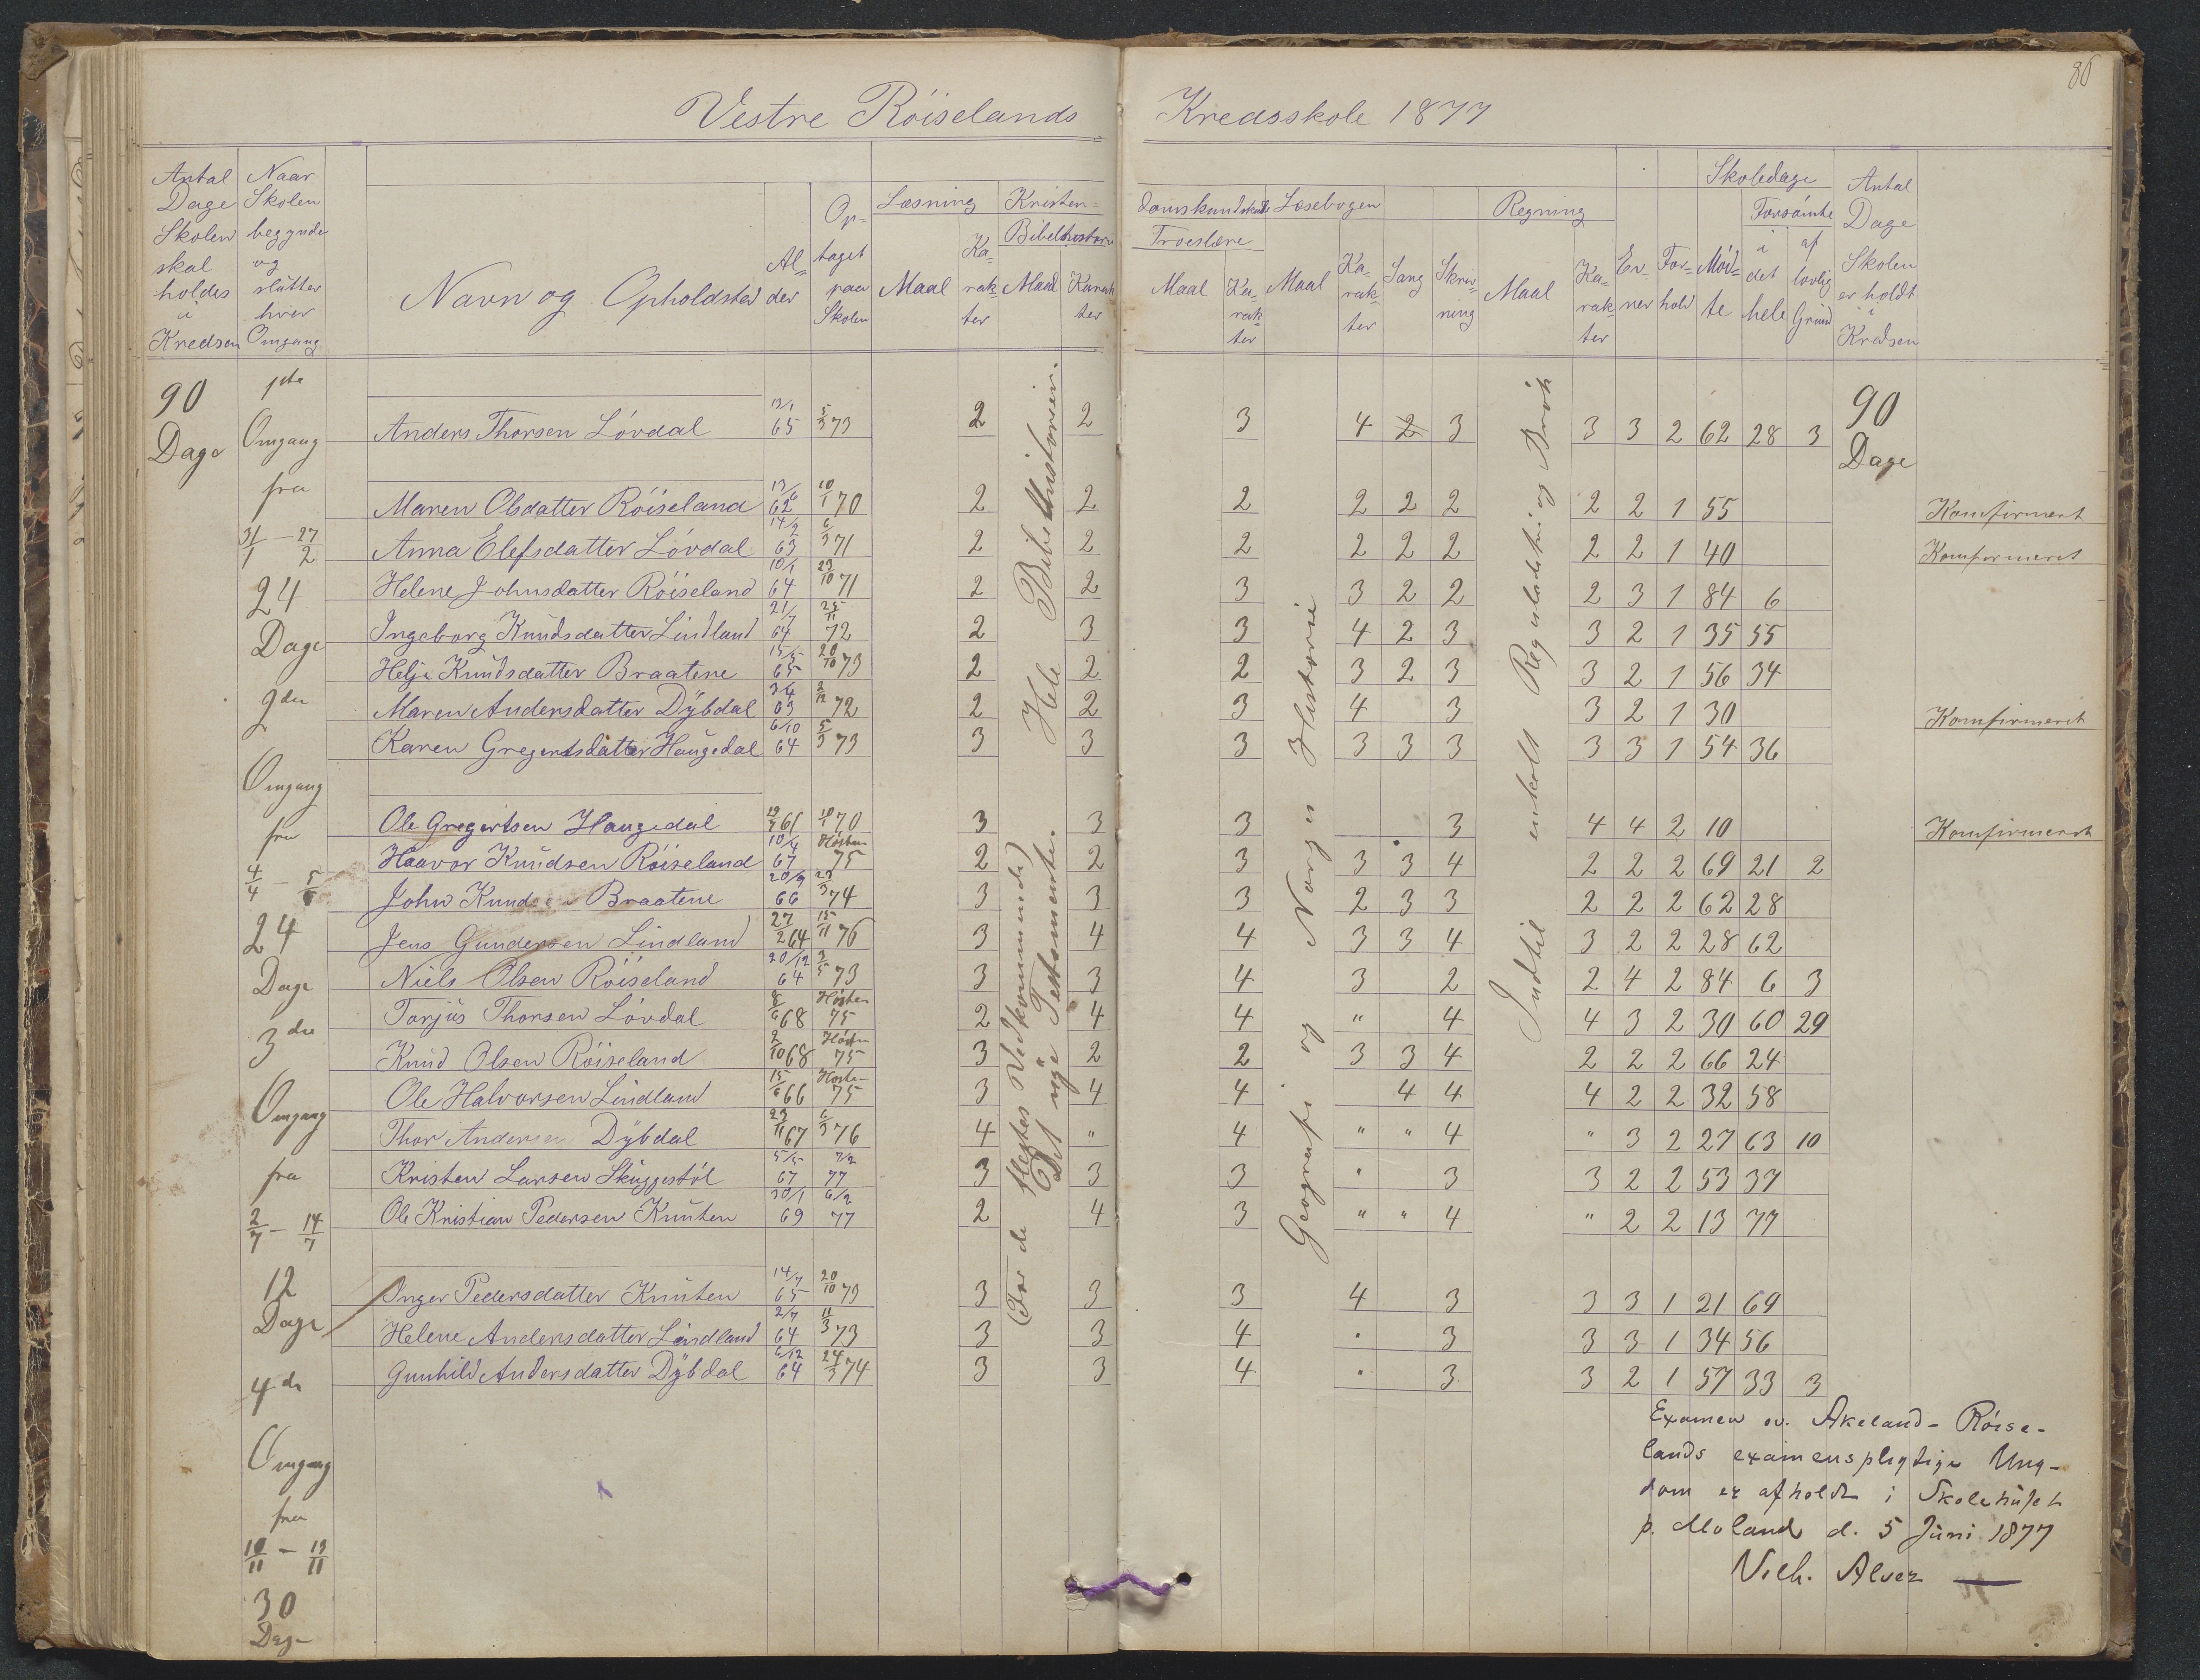 86
Vestre Röiselands Kredsskole 1877
Antal Dage Skolen skal holdes i Kredsen
Naar Skolen begynder og slutter hver Omgang
Navn og Opholdsted
Alder
Optaget paa Skolen
Læsning
Maal
Karakter
Kristendomskundskab
Bibelhistorie
Maal
Karakter
Troeslære
Maal
Karakter
Læsebogen
Maal
Karakter
Sang
Skrivning
Regning
Maal
Karakter
Evner
Forhold
Skoledage
Mödte
Forsömte
i det hele
af lovlig Grund
Antal Dage Skolen er holdt i Kredsen
90 Dage
1ste Omgang fra 31/1 — 27/2
24 Dage
2den Omgang fra 4/4 — 5/6
24 Dage
3die Omgang fra 2/7 — 14/7
12 Dage
4de Omgang fra 10/11 — 13/11
30 Dage
Anders Thorsen Lövdal 13/1 65 5/3 73 2 2 3 4 2 3 3 3 2 62 28 3 90 Dage
Maren Olsdatter Röiseland 13/6 62 10/1 70 2 2 2 2 2 2 2 2 1 55 Komfirmert
Anna Elefsdatter Lövdal 14/2 63 6/3 71 2 2 2 2 2 2 2 2 1 40 Komfirmeret
Helene Johnsdatter Röiseland 10/1 64 23/10 71 2 2 3 3 2 2 2 3 1 84 6
Ingeborg Knudsdatter Lindland 21/7 64 25/11 72 2 3 3 4 2 3 3 2 1 35 55
Helje Knudsdatter Braatene 15/5 65 20/10 73 2 2 2 3 2 3 3 2 1 56 34
Maren Andersdatter Dybdal 3/4 63 2/12 72 2 2 3 4 3 3 2 1 30 Komfirmeret
Karen Gregertsdatter Haugedal 6/10 64 5/3 73 3 3 3 3 3 3 3 3 1 54 36
Ole Gregertsen Haugedal 61 10/1 70 3 3 3 3 4 4 2 10 Komfirmeret
Haavor Knudsen Röiseland 10/4 67 Hösten 75 2 2 3 3 3 4 2 2 2 69 21 2
John Knudsen Braatene 20/9 66 23/3 74 3 3 3 2 3 3 2 2 2 62 28
Jens Gundersen Lindland 27/2 64 15/11 76 3 4 4 3 3 4 3 2 2 28 62
Niels Olsen Röiseland 20/12 64 3/5 73 3 3 4 3 2 2 4 2 84 6 3
Torjus Thorsen Lövdal 8/6 68 Hösten 75 2 4 4 " 4 4 3 2 30 60 29
Knud Olsen Röiseland 2/10 68 Hösten 75 3 2 2 3 3 4 2 2 2 66 24
Ole Halvorsen Lindland 15/6 66 Hösten 75 3 4 4 4 4 4 2 2 32 58
Thor Andersen Dybdal 23/11 67 6/3 76 4 " 4 " " 4 " 3 2 27 63 10
Kristen Larsen Skuggestöl 5/5 67 7/2 77 3 3 3 " 3 3 2 2 53 37
Ole Kristian Pedersen Knuten 30/1 69 6/2 77 2 4 3 " " 4 " 2 2 13 77
Inger Pedersdatter Knuten 14/7 65 20/10 73 3 3 3 4 3 3 3 1 21 69
Helene Andersdatter Lindland 2/7 64 11/3 73 3 3 4 " 3 3 3 1 34 56
Gunhild Andersdatter Dybdal 6/12 64 24/3 74 3 3 4 " 3 3 2 1 57 33 3
Hele Bibelhistorien.
(For de flestes Vedkommende)
Det nye Testamente.
Geografi og Norges Historie
Indtil enkelt Reguladetri og Brök
Examen ov. Akeland-Röise-
lands examenspligtige Ung-
dom er afholdt i Skolehuset
p. Moland d. 5 Juni 1877
Vilh. Alver